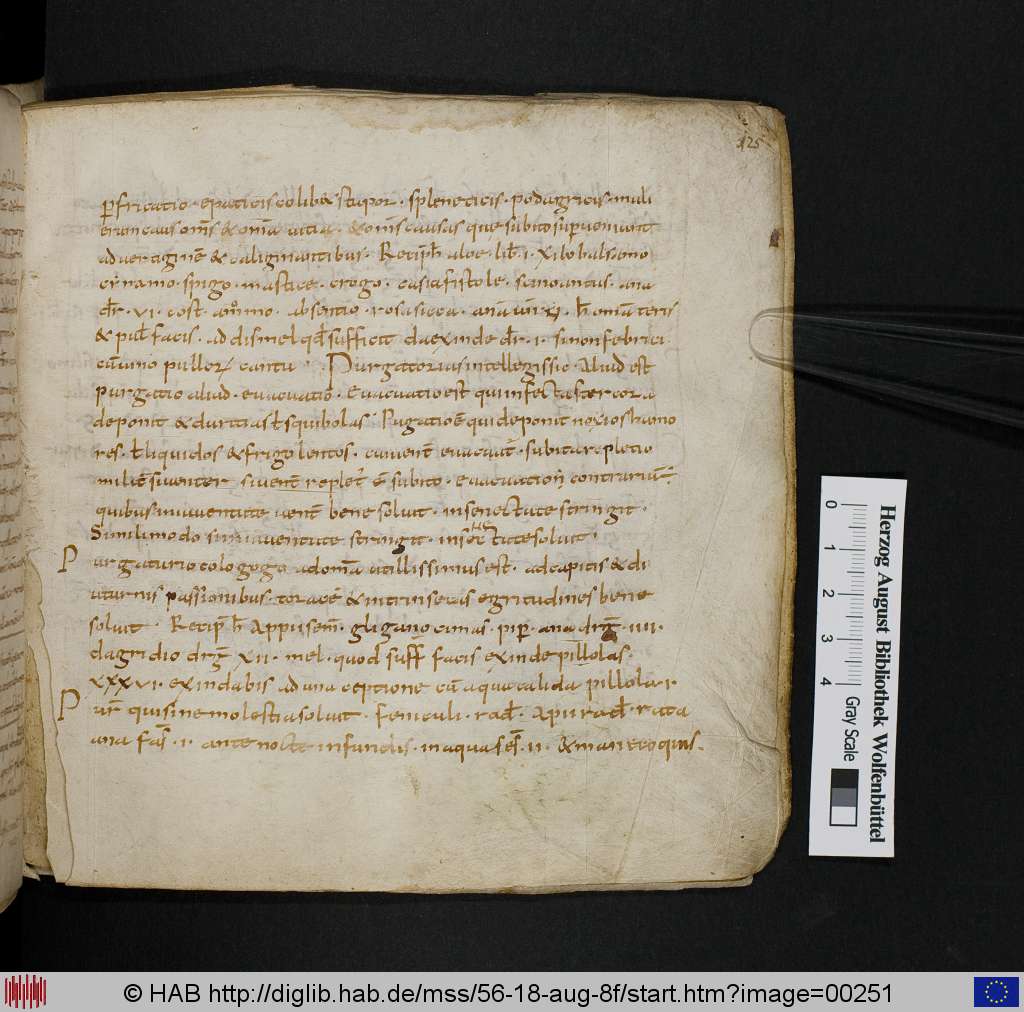 125
ꝑfricatio · epaticis colib& stupor · spleneticis · podagricis · muli
erum caus om̄s & om̄a uitia · & om̄s causas que subito sup̱ueniunt
ad uertiginē & caliginantibus · Recip̄ h̄ aloe · lib̄ · i · xilobalsamo
cynamo · spigo · mastice · crogo · casia fistole · ana
dr̄ · vi · cost · absentio · rosa sicca · ana h̄ om̄a teris
& pul̄ facis · ad dis mel qd̄ sufficit da exinde dr̄ · i · si non febrici
cū uino · Purgatorias intellegis sic · Aliud est
purgatio aliud · euacuatio · Euacuatio est qui infecta stercora
deponit & duritias squibolas · Pugatioē qui deponit noxios humo
res · liquidos & frigolentos · subita repletio
uenter · siuent replet̄ ē subito · euacuation̄ contrariū ·
quibus in iuuentute uent̄ bene soluit · in senectute stringit ·
Simili modo si in iuuentute stringit · in senectute soluit ·
Purgaturio cologogo ad om̄a utillissimus est · ad capitis & di
uturnis passionibus · toracē & intrinsecis egritudines bene
soluit · Recip̄ h̄ Appii sem̄ · gligano cimas · pip̄ · ana drḡ · iiii ·
dagridio drḡ xii · mel · quod suff̄ facis exinde pillolas ·
xxxvi · exin dabis ad una ceptione cū aqua calida pillola · i
Pur̄ qui sine molestia soluit · feniculi · rad̄ · Apii rad̄ · ruta
ana fas̄ · i · ante nocte infundis · in aqua ses̄ · ii · & mane coquis ·
Herzog August Bibliothek Wolfenbüttel
0 1 2 3 4
Gray Scale
© HAB http://diglib.hab.de/mss/56-18-aug-8f/start.htm?image=00251